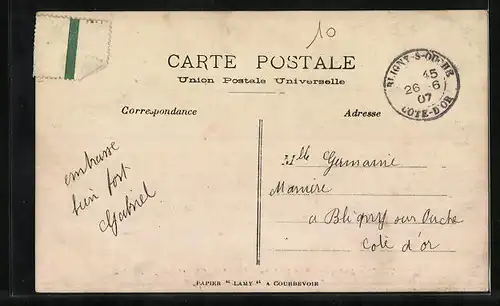 10
CARTE POSTALE
Union Postale Universelle
BLIGNY-S-OUCHE
45
26 - 6
07
COTE-D'OR
Correspondance
Adresse
embrasse
bien fort
Gabriel
Mlle Germaine
a Bligny sur Ouche
Cote d'or
PAPIER "LAMY" A COURBEVOIE